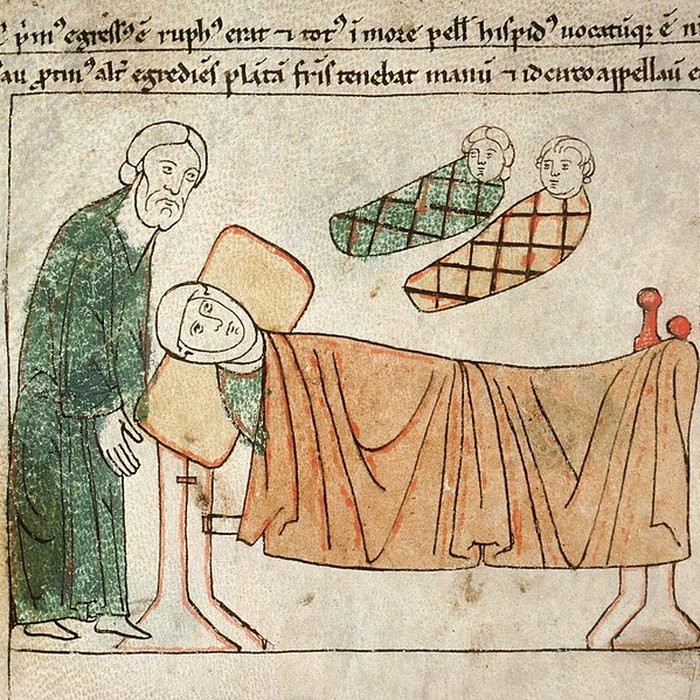 p̄m᾽ egress᾽ ē ruph᾽ erat ⁊ tot᾽ ī more pell̄ hispid᾽ uocatūqꝫ ē
au ꝓtin᾽ alt᾽ egrediēs plātā fr̄is tenebat manū ⁊ idcirco appellau